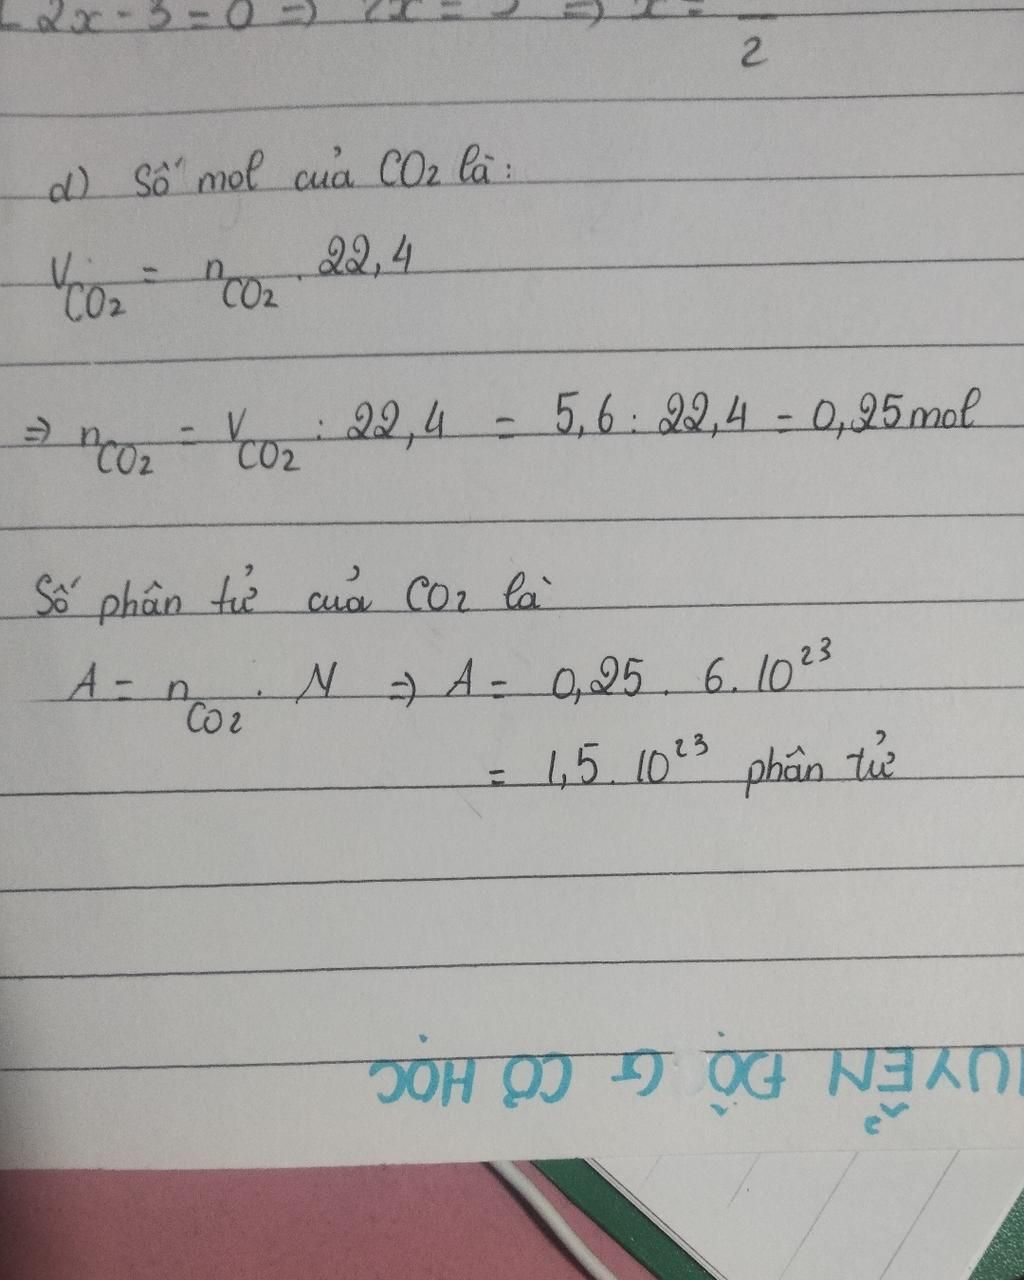 2x - 3 = 0 => 2x = 3 => x =
2
d) Số mol của CO2 là:
V CO2 = n CO2 . 22,4
=> n CO2 = V CO2 : 22,4 = 5,6 : 22,4 = 0,25 mol
Số phân tử của CO2 là
A = n CO2 . N => A = 0,25 . 6.10²³
= 1,5 . 10²³ phân tử
UYỂN ĐỘ G CƠ HỌC